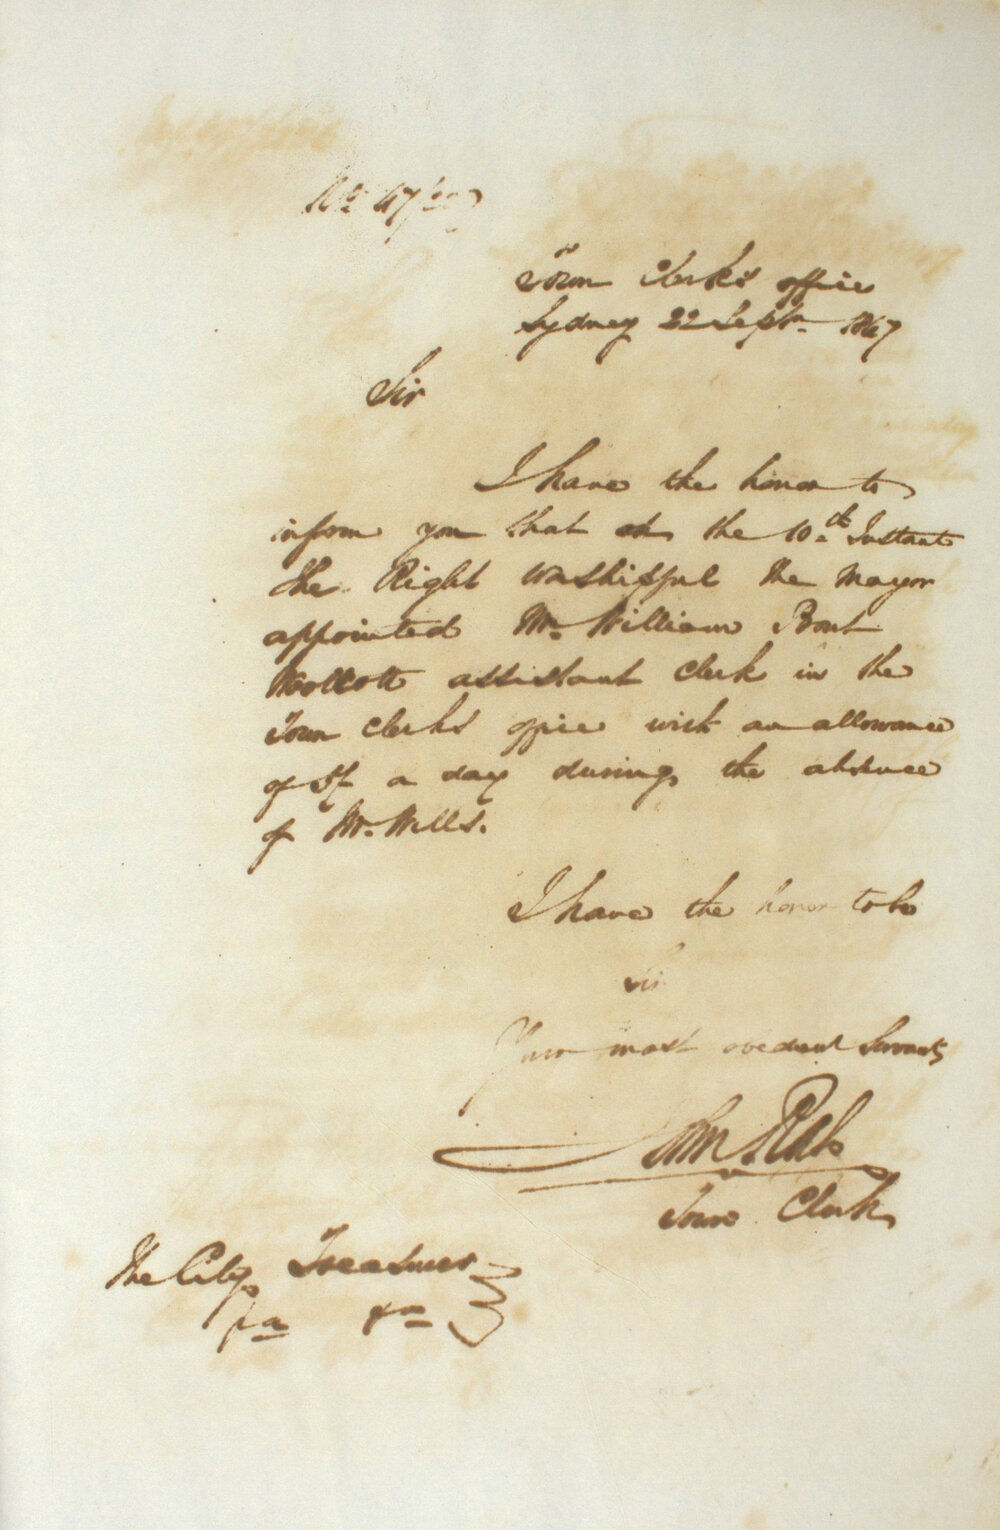 No 47/
Town Clerk's office
Sydney 22 Septr 1847
Sir
I have the honor to
inform you that on the 10th Instant
the Right Worshipful the Mayor
appointed Mr William Pont
Wollcott assistant Clerk in the
Town Clerks office with an allowance
of 5/ a day during the absence
of Mr Wills.
I have the honor to be
Sir
Your most obedient Servant
John Rae
Town Clerk
The City Treasurer
&a &a